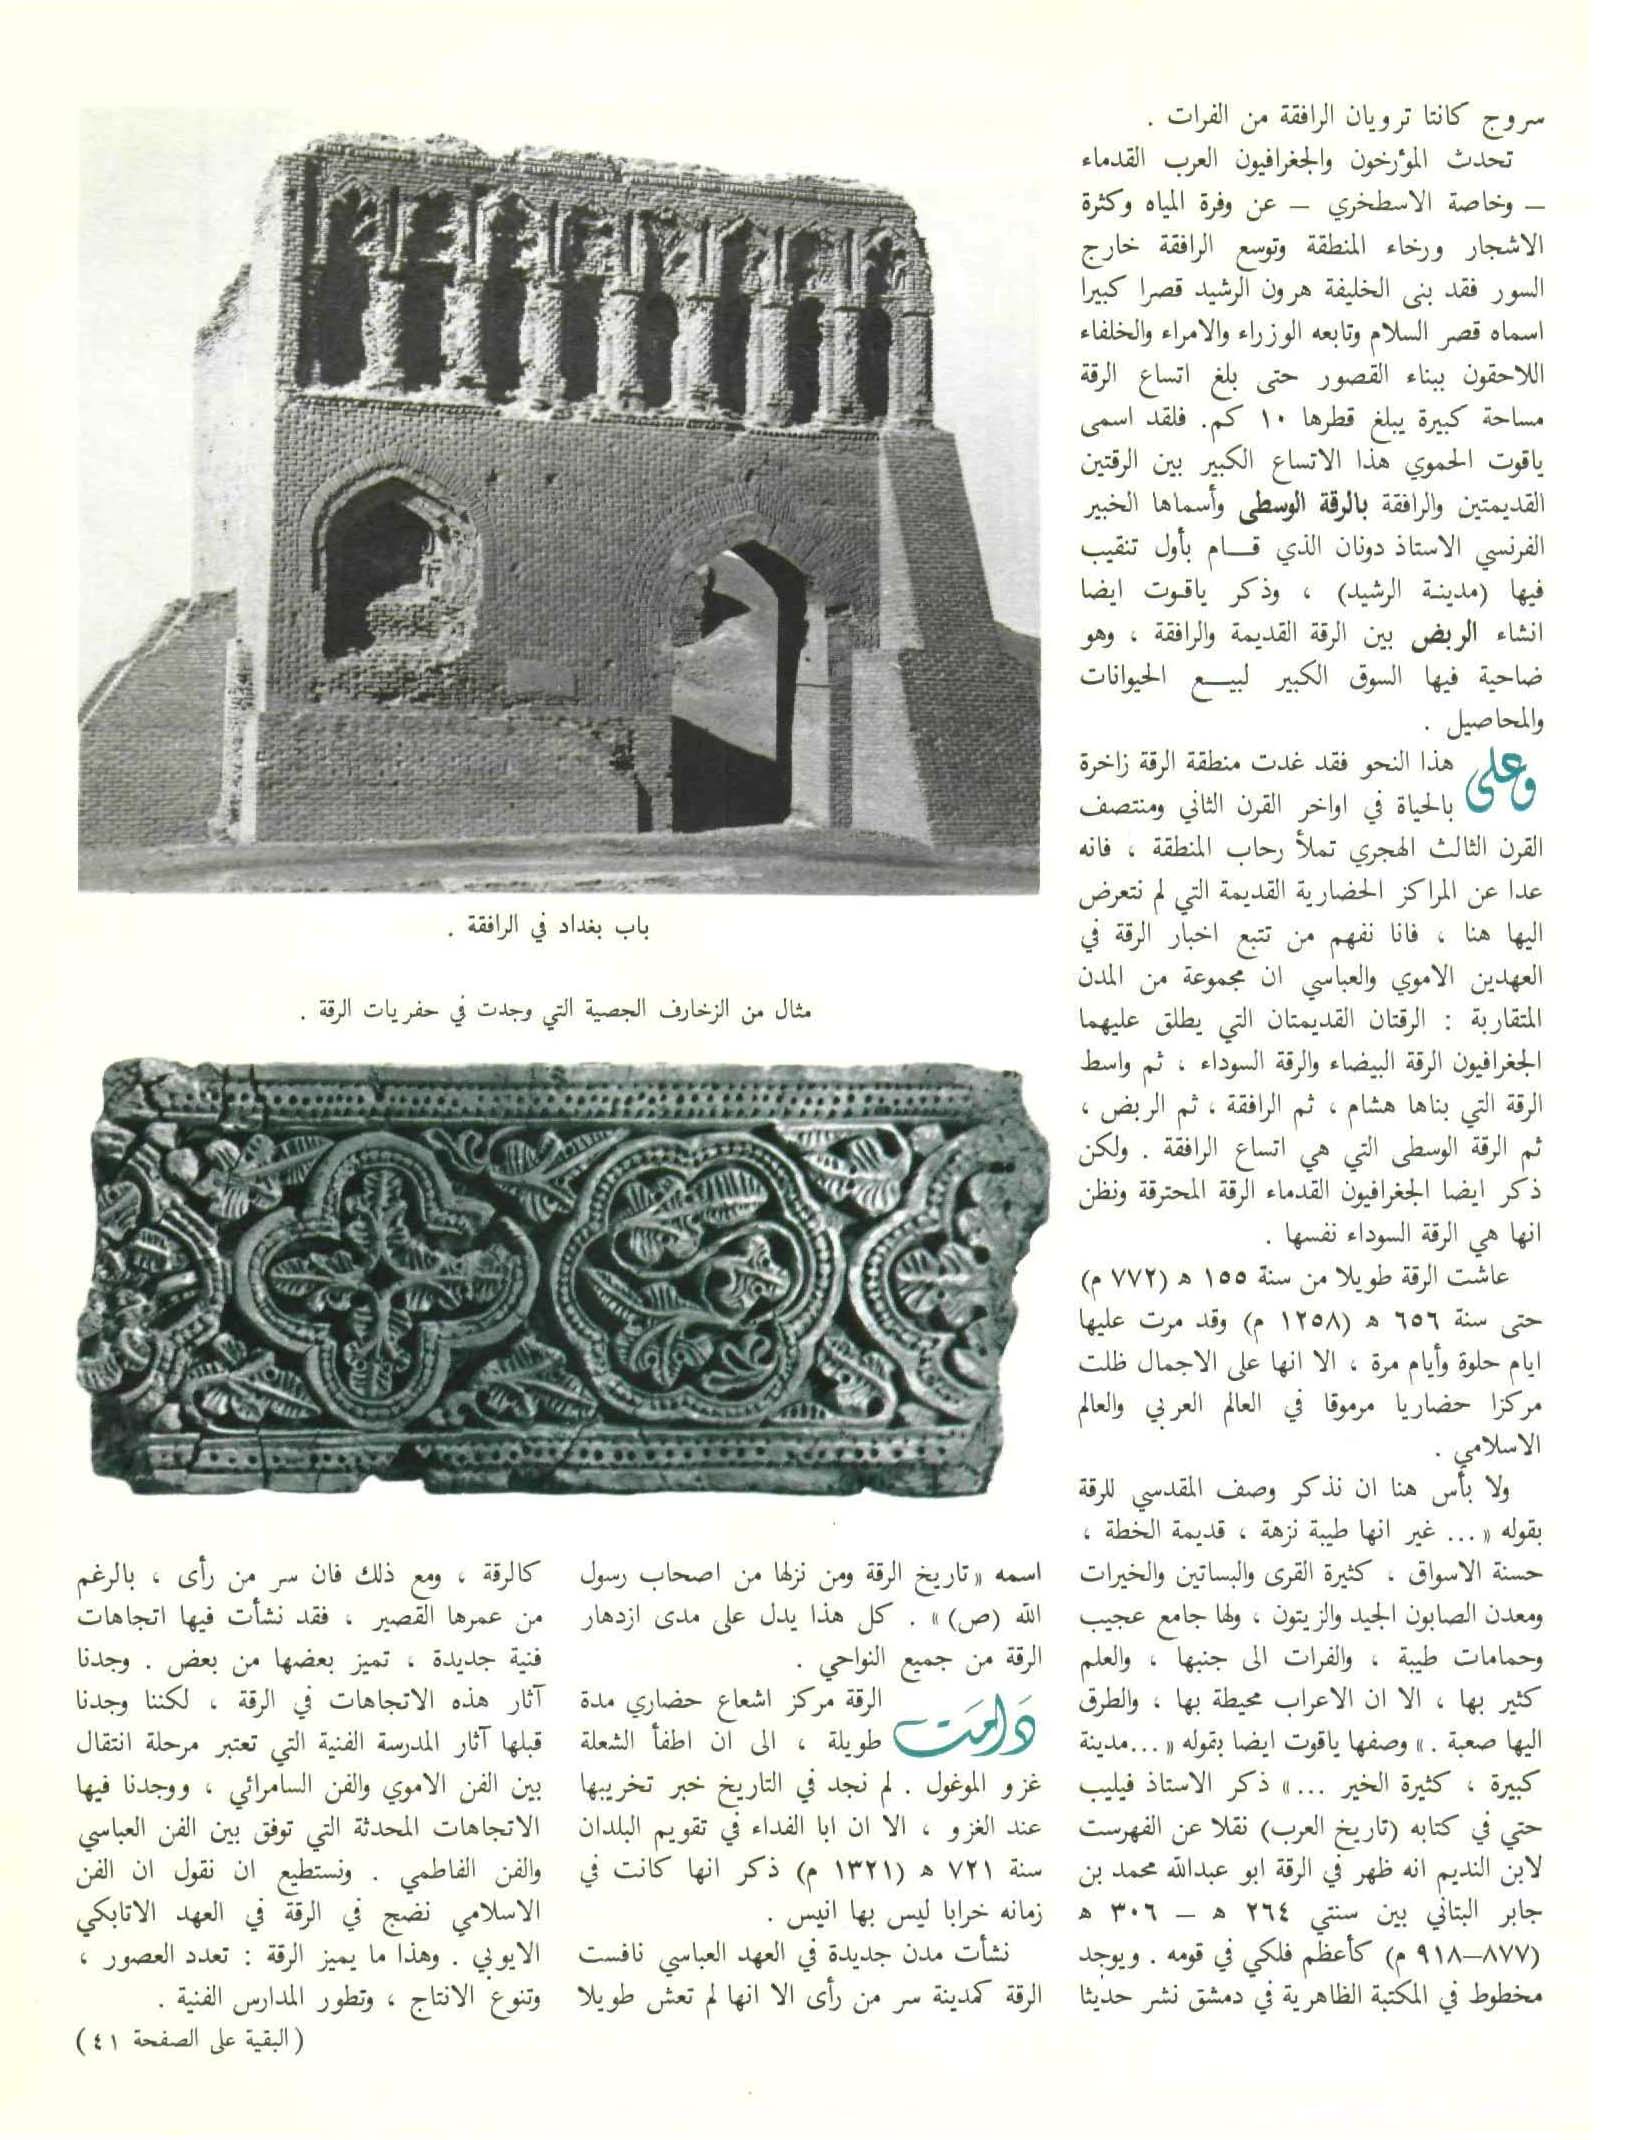 سروج كانتا ترويان الرافقة من الفرات .
تحدث المؤرخون والجغرافيون العرب القدماء
– وخاصة الاسطخري – عن وفرة المياه وكثرة
الاشجار ورخاء المنطقة وتوسع الرافقة خارج
السور فقد بنى الخليفة هرون الرشيد قصرا كبيرا
اسماه قصر السلام وتابعه الوزراء والامراء والخلفاء
اللاحقون ببناء القصور حتى بلغ اتساع الرقة
مساحة كبيرة يبلغ قطرها ١٠ كم. فلقد اسمى
ياقوت الحموي هذا الاتساع الكبير بين الرقتين
القديمتين والرافقة بالرقة الوسطى وأسماها الخبير
الفرنسي الاستاذ دونان الذي قام بأول تنقيب
فيها (مدينة الرشيد) ، وذكر ياقوت ايضا
انشاء الربض بين الرقة القديمة والرافقة ، وهو
ضاحية فيها السوق الكبير لبيع الحيوانات
والمحاصيل .
وعلى هذا النحو فقد غدت منطقة الرقة زاخرة
بالحياة في اواخر القرن الثاني ومنتصف
القرن الثالث الهجري تملأ رحاب المنطقة ، فانه
عدا عن المراكز الحضارية القديمة التي لم نتعرض
اليها هنا ، فانا نفهم من تتبع اخبار الرقة في
العهدين الاموي والعباسي ان مجموعة من المدن
المتقاربة : الرقتان القديمتان التي يطلق عليهما
الجغرافيون الرقة البيضاء والرقة السوداء ، ثم واسط
الرقة التي بناها هشام ، ثم الرافقة ، ثم الربض ،
ثم الرقة الوسطى التي هي اتساع الرافقة . ولكن
ذكر ايضا الجغرافيون القدماء الرقة المحترقة ونظن
انها هي الرقة السوداء نفسها .
عاشت الرقة طويلا من سنة ١٥٥ ه (٧٧٢ م)
حتى سنة ٦٥٦ ه (١٢٥٨ م) وقد مرت عليها
ايام حلوة وأيام مرة ، الا انها على الاجمال ظلت
مركزا حضاريا مرموقا في العالم العربي والعالم
الاسلامي .
ولا بأس هنا ان نذكر وصف المقدسي للرقة
بقوله « ... غير انها طيبة نزهة ، قديمة الخطة ،
حسنة الاسواق ، كثيرة القرى والبساتين والخيرات
ومعدن الصابون الجيد والزيتون ، ولها جامع عجيب
وحمامات طيبة ، والفرات الى جنبها ، والعلم
كثير بها ، الا ان الاعراب محيطة بها ، والطرق
اليها صعبة .» وصفها ياقوت ايضا بقوله « ...مدينة
كبيرة ، كثيرة الخير ...» ذكر الاستاذ فيليب
حتي في كتابه (تاريخ العرب) نقلا عن الفهرست
لابن النديم انه ظهر في الرقة ابو عبدالله محمد بن
جابر البتاني بين سنتي ٢٦٤ ه – ٣٠٦ ه
(٨٧٧–٩١٨ م) كأعظم فلكي في قومه . ويوجد
مخطوط في المكتبة الظاهرية في دمشق نشر حديثا
باب بغداد في الرافقة .
مثال من الزخارف الجصية التي وجدت في حفريات الرقة .
اسمه « تاريخ الرقة ومن نزلها من اصحاب رسول
الله (ص) » . كل هذا يدل على مدى ازدهار
الرقة من جميع النواحي .
دَامَت الرقة مركز اشعاع حضاري مدة
طويلة ، الى ان اطفأ الشعلة
غزو الموغول . لم نجد في التاريخ خبر تخريبها
عند الغزو ، الا ان ابا الفداء في تقويم البلدان
سنة ٧٢١ ه (١٣٢١ م) ذكر انها كانت في
زمانه خرابا ليس بها انيس .
نشأت مدن جديدة في العهد العباسي نافست
الرقة كمدينة سر من رأى الا انها لم تعش طويلا
كالرقة ، ومع ذلك فان سر من رأى ، بالرغم
من عمرها القصير ، فقد نشأت فيها اتجاهات
فنية جديدة ، تميز بعضها من بعض . وجدنا
آثار هذه الاتجاهات في الرقة ، لكننا وجدنا
قبلها آثار المدرسة الفنية التي تعتبر مرحلة انتقال
بين الفن الاموي والفن السامرائي ، ووجدنا فيها
الاتجاهات المحدثة التي توفق بين الفن العباسي
والفن الفاطمي . ونستطيع ان نقول ان الفن
الاسلامي نضج في الرقة في العهد الاتابكي
الايوبي . وهذا ما يميز الرقة : تعدد العصور ،
وتنوع الانتاج ، وتطور المدارس الفنية .
(البقية على الصفحة ٤١)